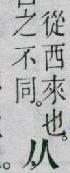 從西來也。从
之不同。